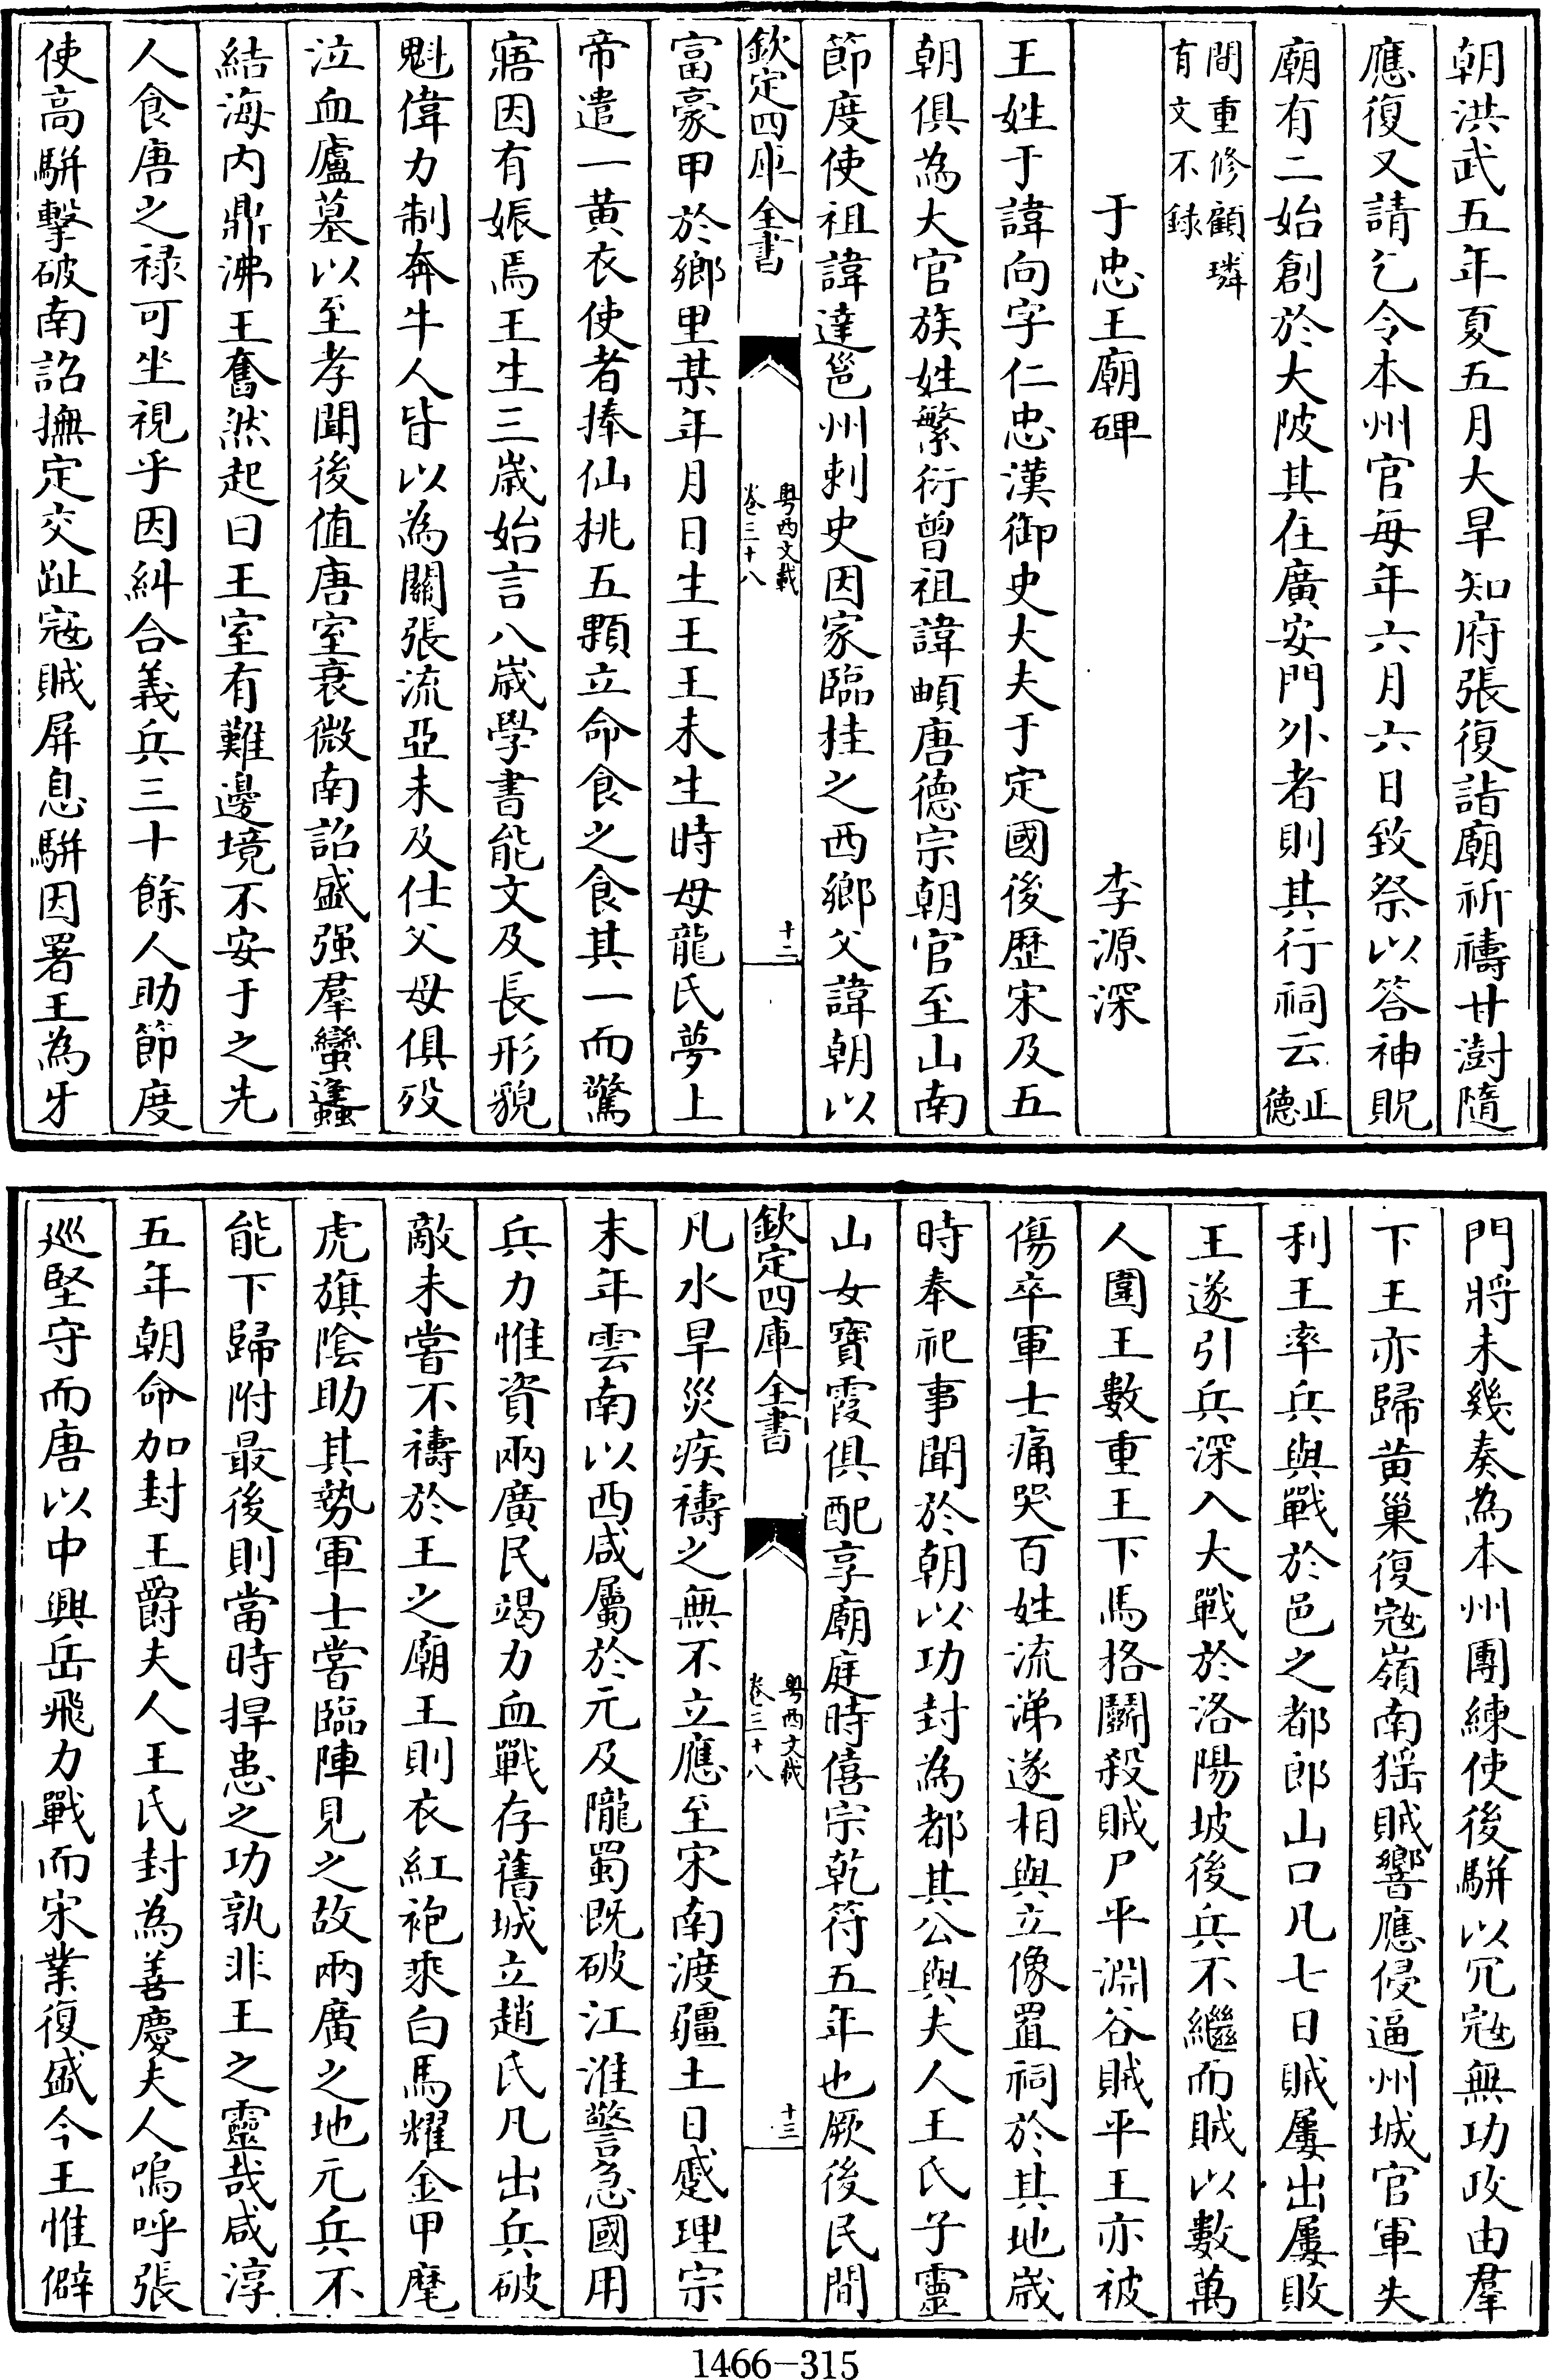 朝洪武五年夏五月大旱知府張復詣廟祈禱甘澍隨
應復又請乞令本州官每年六月六日致祭以答神貺
廟有二始創於大陂其在廣安門外者則其行祠云正德
間重修顧璘
有文不錄
于忠王廟碑 李源深
王姓于諱向字仁忠漢御史大夫于定國後歴宋及五
朝俱為大官族姓繁衍曾祖諱頔唐德宗朝官至山南
節度使祖諱達邕州刺史因家臨桂之西鄉父諱朝以
欽定四庫全書 粤西文載 卷三十八 十二
富豪甲於鄉里某年月日生王王未生時母龍氏夢上
帝遣一黄衣使者捧仙桃五顆立命食之食其一而驚
寤因有娠焉王生三歲始言八歲學書能文及長形貌
魁偉力制奔牛人皆以為關張流亞未及仕父母俱殁
泣血廬墓以至孝聞後值唐室衰微南詔盛强羣蠻蠭
結海内鼎沸王奮然起曰王室有難邊境不安于之先
人食唐之禄可坐視乎因糾合義兵三十餘人助節度
使高駢擊破南詔撫定交趾寇賊屏息駢因署王為牙
門將未幾奏為本州團練使後駢以冗寇無功政由羣
下王亦歸黄巢復寇嶺南猺賊響應侵逼州城官軍失
利王率兵與戰於邑之都郎山口凡七日賊屢出屢敗
王遂引兵深入大戰於洛陽坡後兵不繼而賊以數萬
人圍王數重王下馬格鬭殺賊尸平淵谷賊平王亦被
傷卒軍士痛哭百姓流涕遂相與立像置祠於其地歲
時奉祀事聞於朝以功封為都其公與夫人王氏子靈
山女寶霞俱配享廟庭時僖宗乾符五年也厥後民間
欽定四庫全書 粤西文載 卷三十八 十三
凡水旱災疾禱之無不立應至宋南渡疆土日蹙理宗
末年雲南以西咸屬於元及隴蜀既破江淮警急國用
兵力惟資兩廣民竭力血戰存舊城立趙氏凡出兵破
敵未嘗不禱於王之廟王則衣紅袍乘白馬耀金甲麾
虎旗陰助其勢軍士嘗臨陣見之故兩廣之地元兵不
能下歸附最後則當時捍患之功孰非王之靈哉咸淳
五年朝命加封王爵夫人王氏封為善慶夫人嗚呼張
廵堅守而唐以中興岳飛力戰而宋業復盛今王惟僻
1466-315